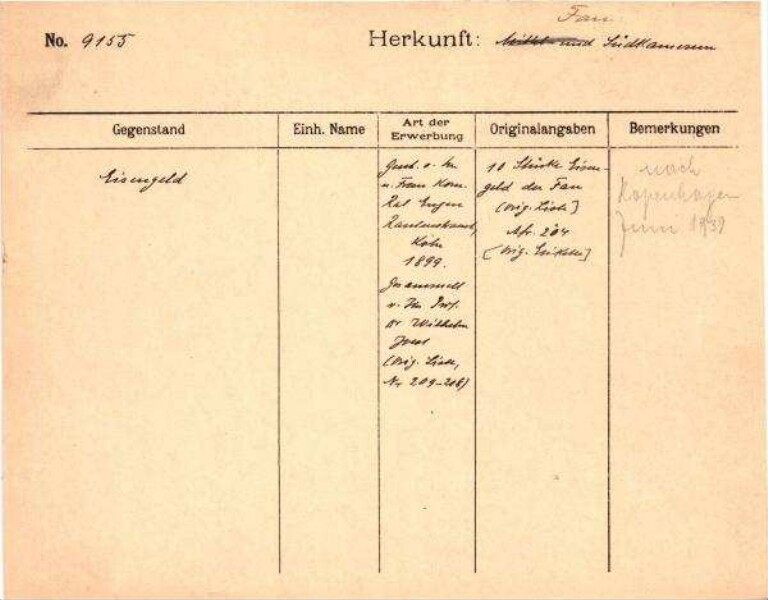 Fan
No. 9155 Herkunft: Mittel- und Südkamerun
Gegenstand Einh. Name Art der Erwerbung Originalangaben Bemerkungen
Eisengeld
Gesch. v. Hn
u. Frau Kom.
Rat Eugen
Rautenstrauch,
Köln
1899.
Gesammelt
v. Hn Prof.
Dr Wilhelm
Joest
(Orig. Liste,
Nr 209-218)
10 Stücke Eisen-
geld der Fan
[Orig. Liste]
Afr. 204
[Orig. Etikette]
nach
Kopenhagen
Juni 1939